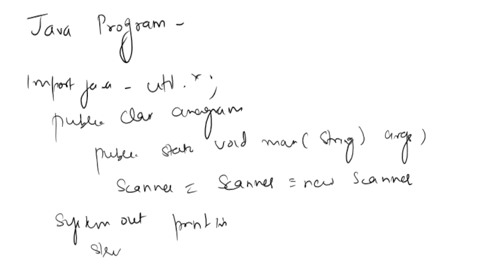 Java Program -
Import java - util.*;
public clas anagram
public static void man( String) args)
Scanner = Scanner = new Scanner
System out println